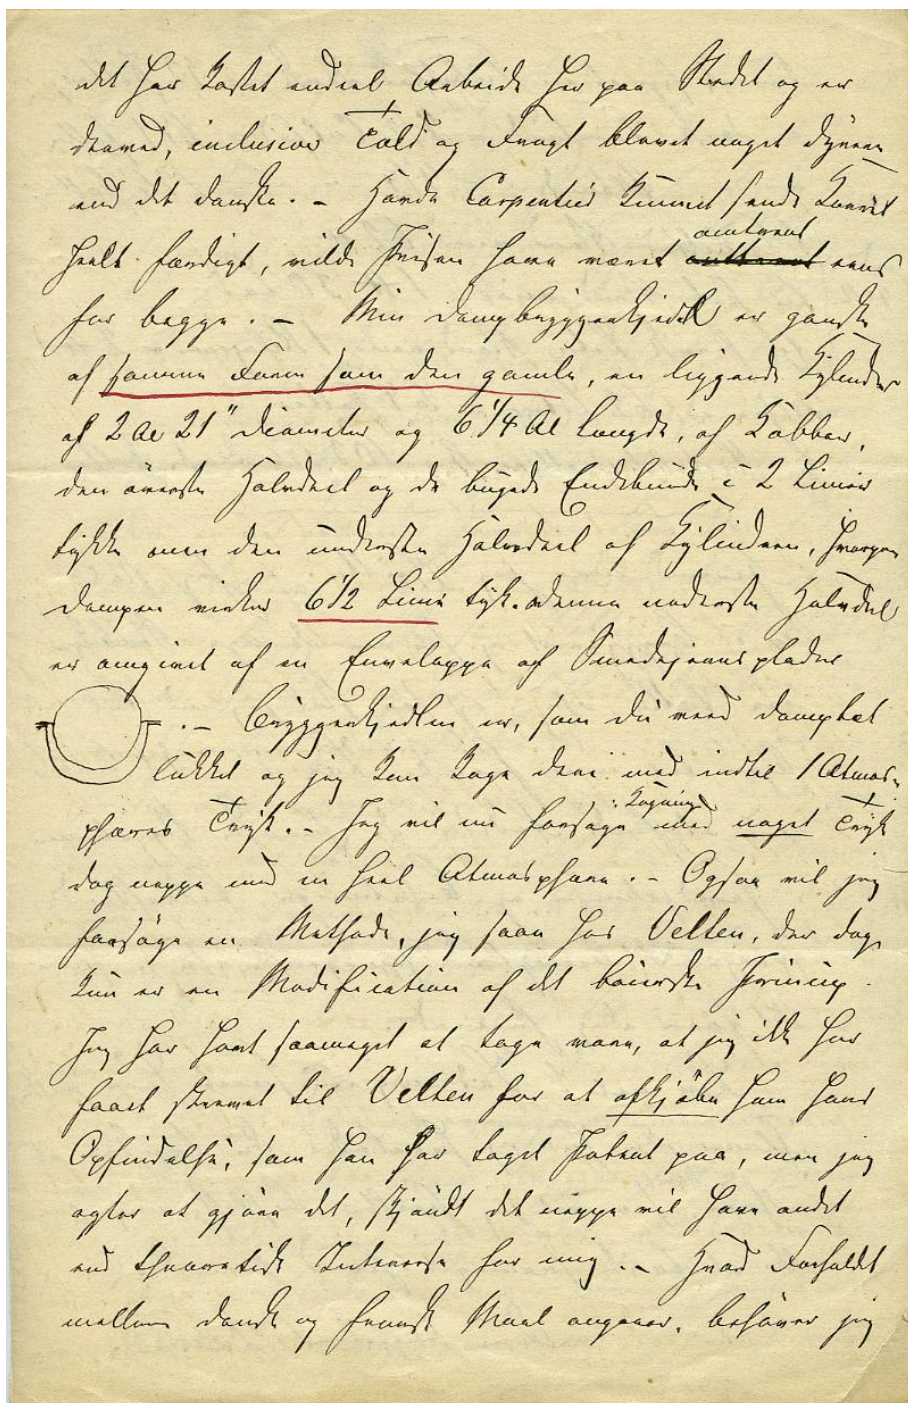 det har kostet endeel Arbeide her paa Stedet og er
derved, inclusive Told og Fragt blevet noget dyrere
end det danske. - Havde Carpentier kunnet sende Karret
heelt færdigt, vilde Prisen have været omtrent eens
for begge. - Min Dampbryggerkjedel er ganske
af samme Form som den gamle, en liggende Kylinder
af 2 Al 21" Diameter og 6 1/4 Al Længde, af Kobber,
den överste Halvdeel og de bugede Endebunde i 2 Linier
tykke men den underste Halvdeel af Kylindren, hvorpaa
Dampen virker 6 1/2 Linie tyk. denne nederste Halvdel
er omgivet af en Enveloppe af Smedejernsplader
.- Bryggerkjedlen er, som du veed damptæt
lukket og jeg kan koge deri med indtil 1 Atmos-
phæres Tryk. - Jeg vil nu forsøge :Kogning: med noget Tryk
dog neppe med en heel Atmosphære. - Ogsaa vil jeg
forsöge en Methode, jeg saae hos Velten, der dog
kun er en Modification af det baierske Princip.
Jeg har havt saameget at tage vare, at jeg ikke har
faaet skrevet til Velten for at afkjöbe ham hans
Opfindelse, som han har taget Patent paa, men jeg
agter at gjöre det, skjöndt det neppe vil have andet
end theoretisk Interesse for mig. - Hvad Forholdet
mellem dansk og fransk Maal angaaer, behöver jeg